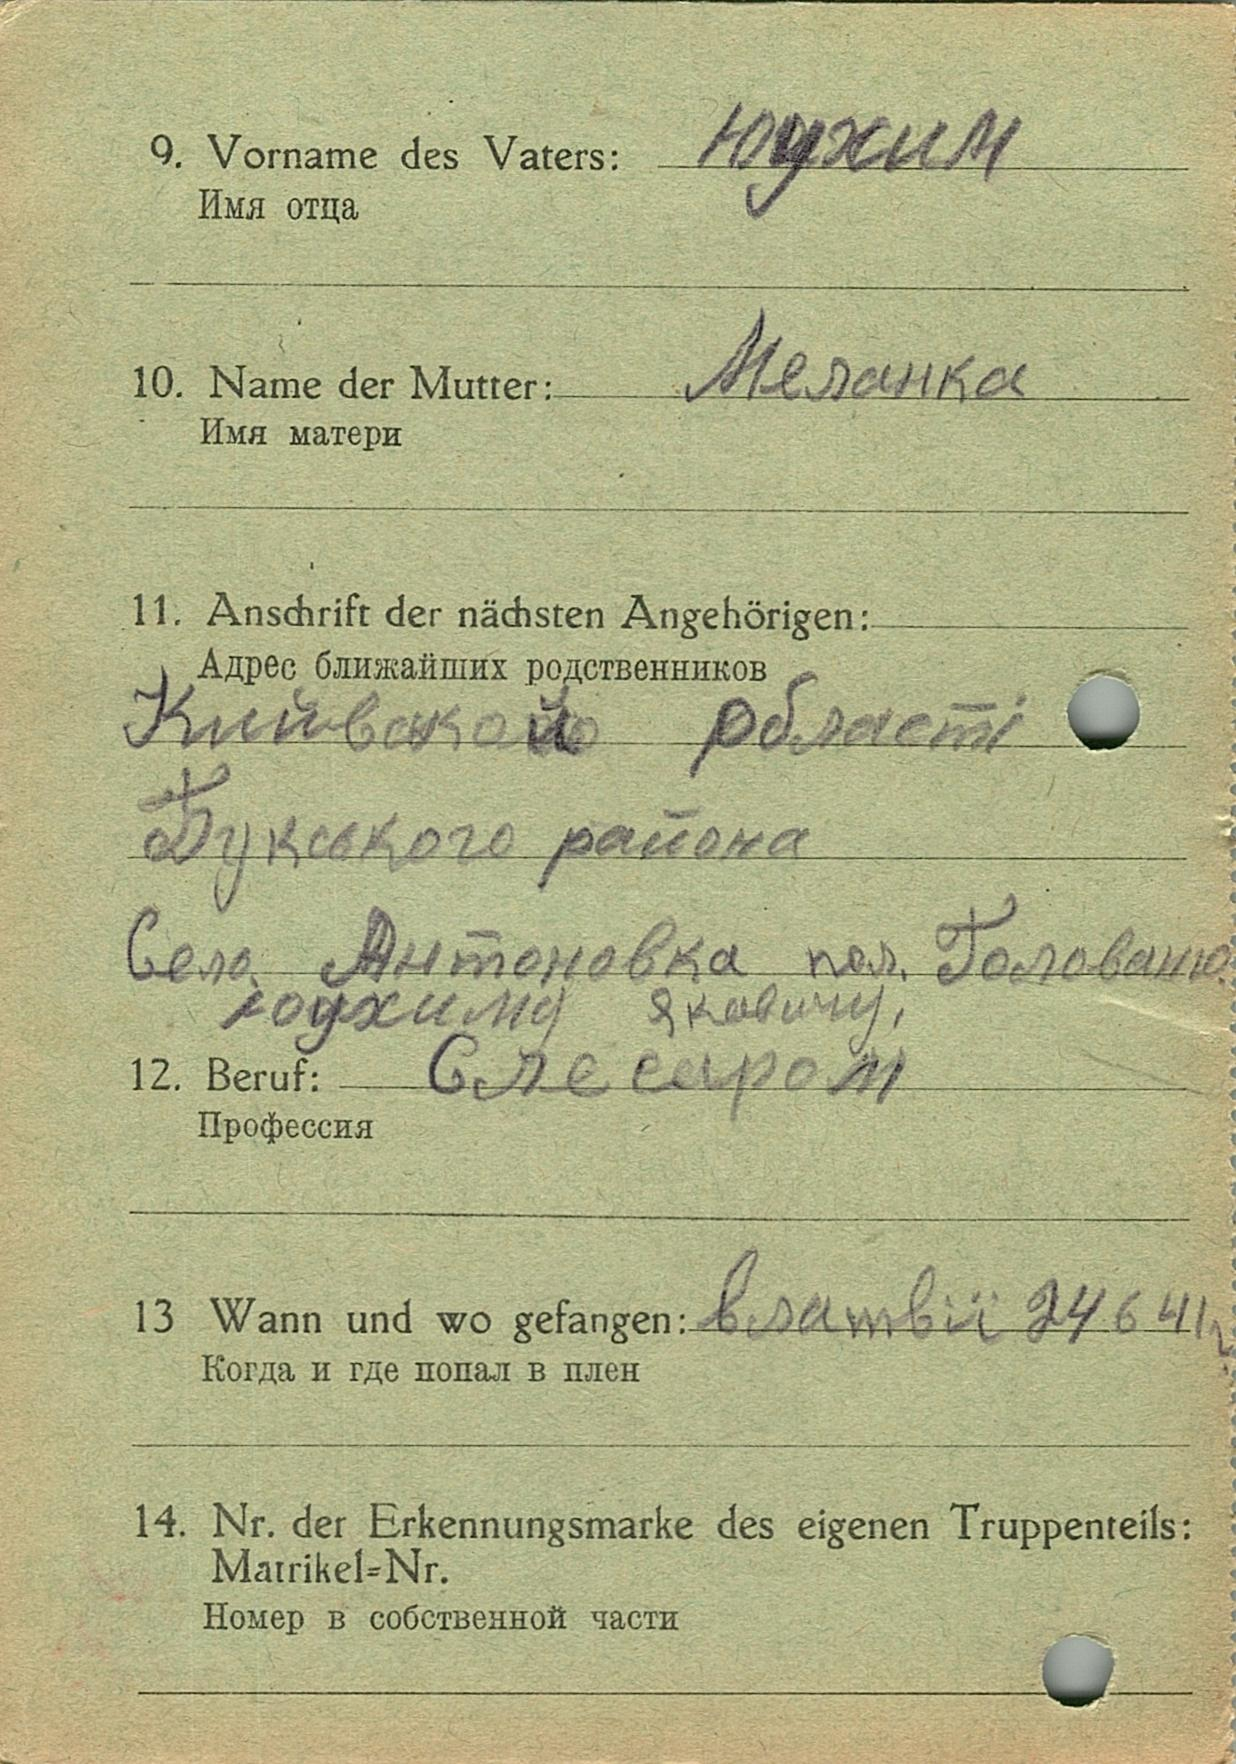 9. Vorname des Vaters: Юухим
Имя отца
10. Name der Mutter: Меланка
Имя матери
11. Anschrift der nächsten Angehörigen:
Адрес ближайших родственников
области
Букського района
Село Антоновка пол. Голованю
Юухиму Яковичу,
12. Beruf: Слесаром
Профессия
13 Wann und wo gefangen: в латвії 24 6 41г.
Когда и где попал в плен
14. Nr. der Erkennungsmarke des eigenen Truppenteils:
Matrikel=Nr.
Номер в собственной части